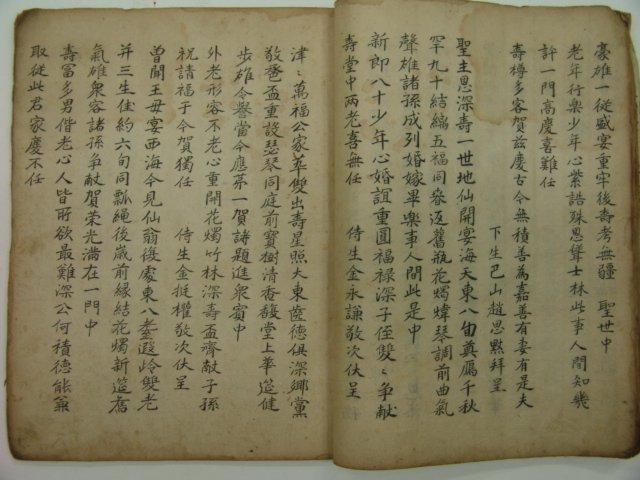 豪雄一從盛宴重牢後壽考無疆 聖世中
老年行樂少年心紫誥殊恩聳士林此事人間知幾
許一門高慶喜難任
壽樽多客賀茲慶古今無積善為嘉善有妻有是夫
下生巴山趙思默拜呈
聖主恩深壽一世地仙開宴海天東八旬奠雁千秋
罕九十結編五福同衾迓舊瓶花燭煒琴調前曲氣
聲雄諸孫成列婚嫁畢樂事人間此是中
新郎八十少年心婚誼重圓福祿深子侄雙雙爭獻
壽堂中兩老喜無任 侍生金永謙敬次伏呈
津〻萬福公家萃雙出壽星照大東齒德俱深鄉黨
敬巹盃重設瑟琴同庭前寶樹清香馥堂上華筵健
步雄令譽當今應第一賀諸題進眾賓中
外老形容不老心重開花燭竹林深壽盃齊獻子孫
祝請福于今賀獨任 侍生金挺權敬次伏呈
曾聞王母宴西海今見仙翁後處東八耋遐齡雙老
并三生佳約六旬同瓢繩後歲前緣結花燭新筵舊
氣雄眾容諸孫爭獻賀榮光滿在一門中
壽富多男偕老心人皆所欲最難深公何積德能兼
取從此君家慶不任